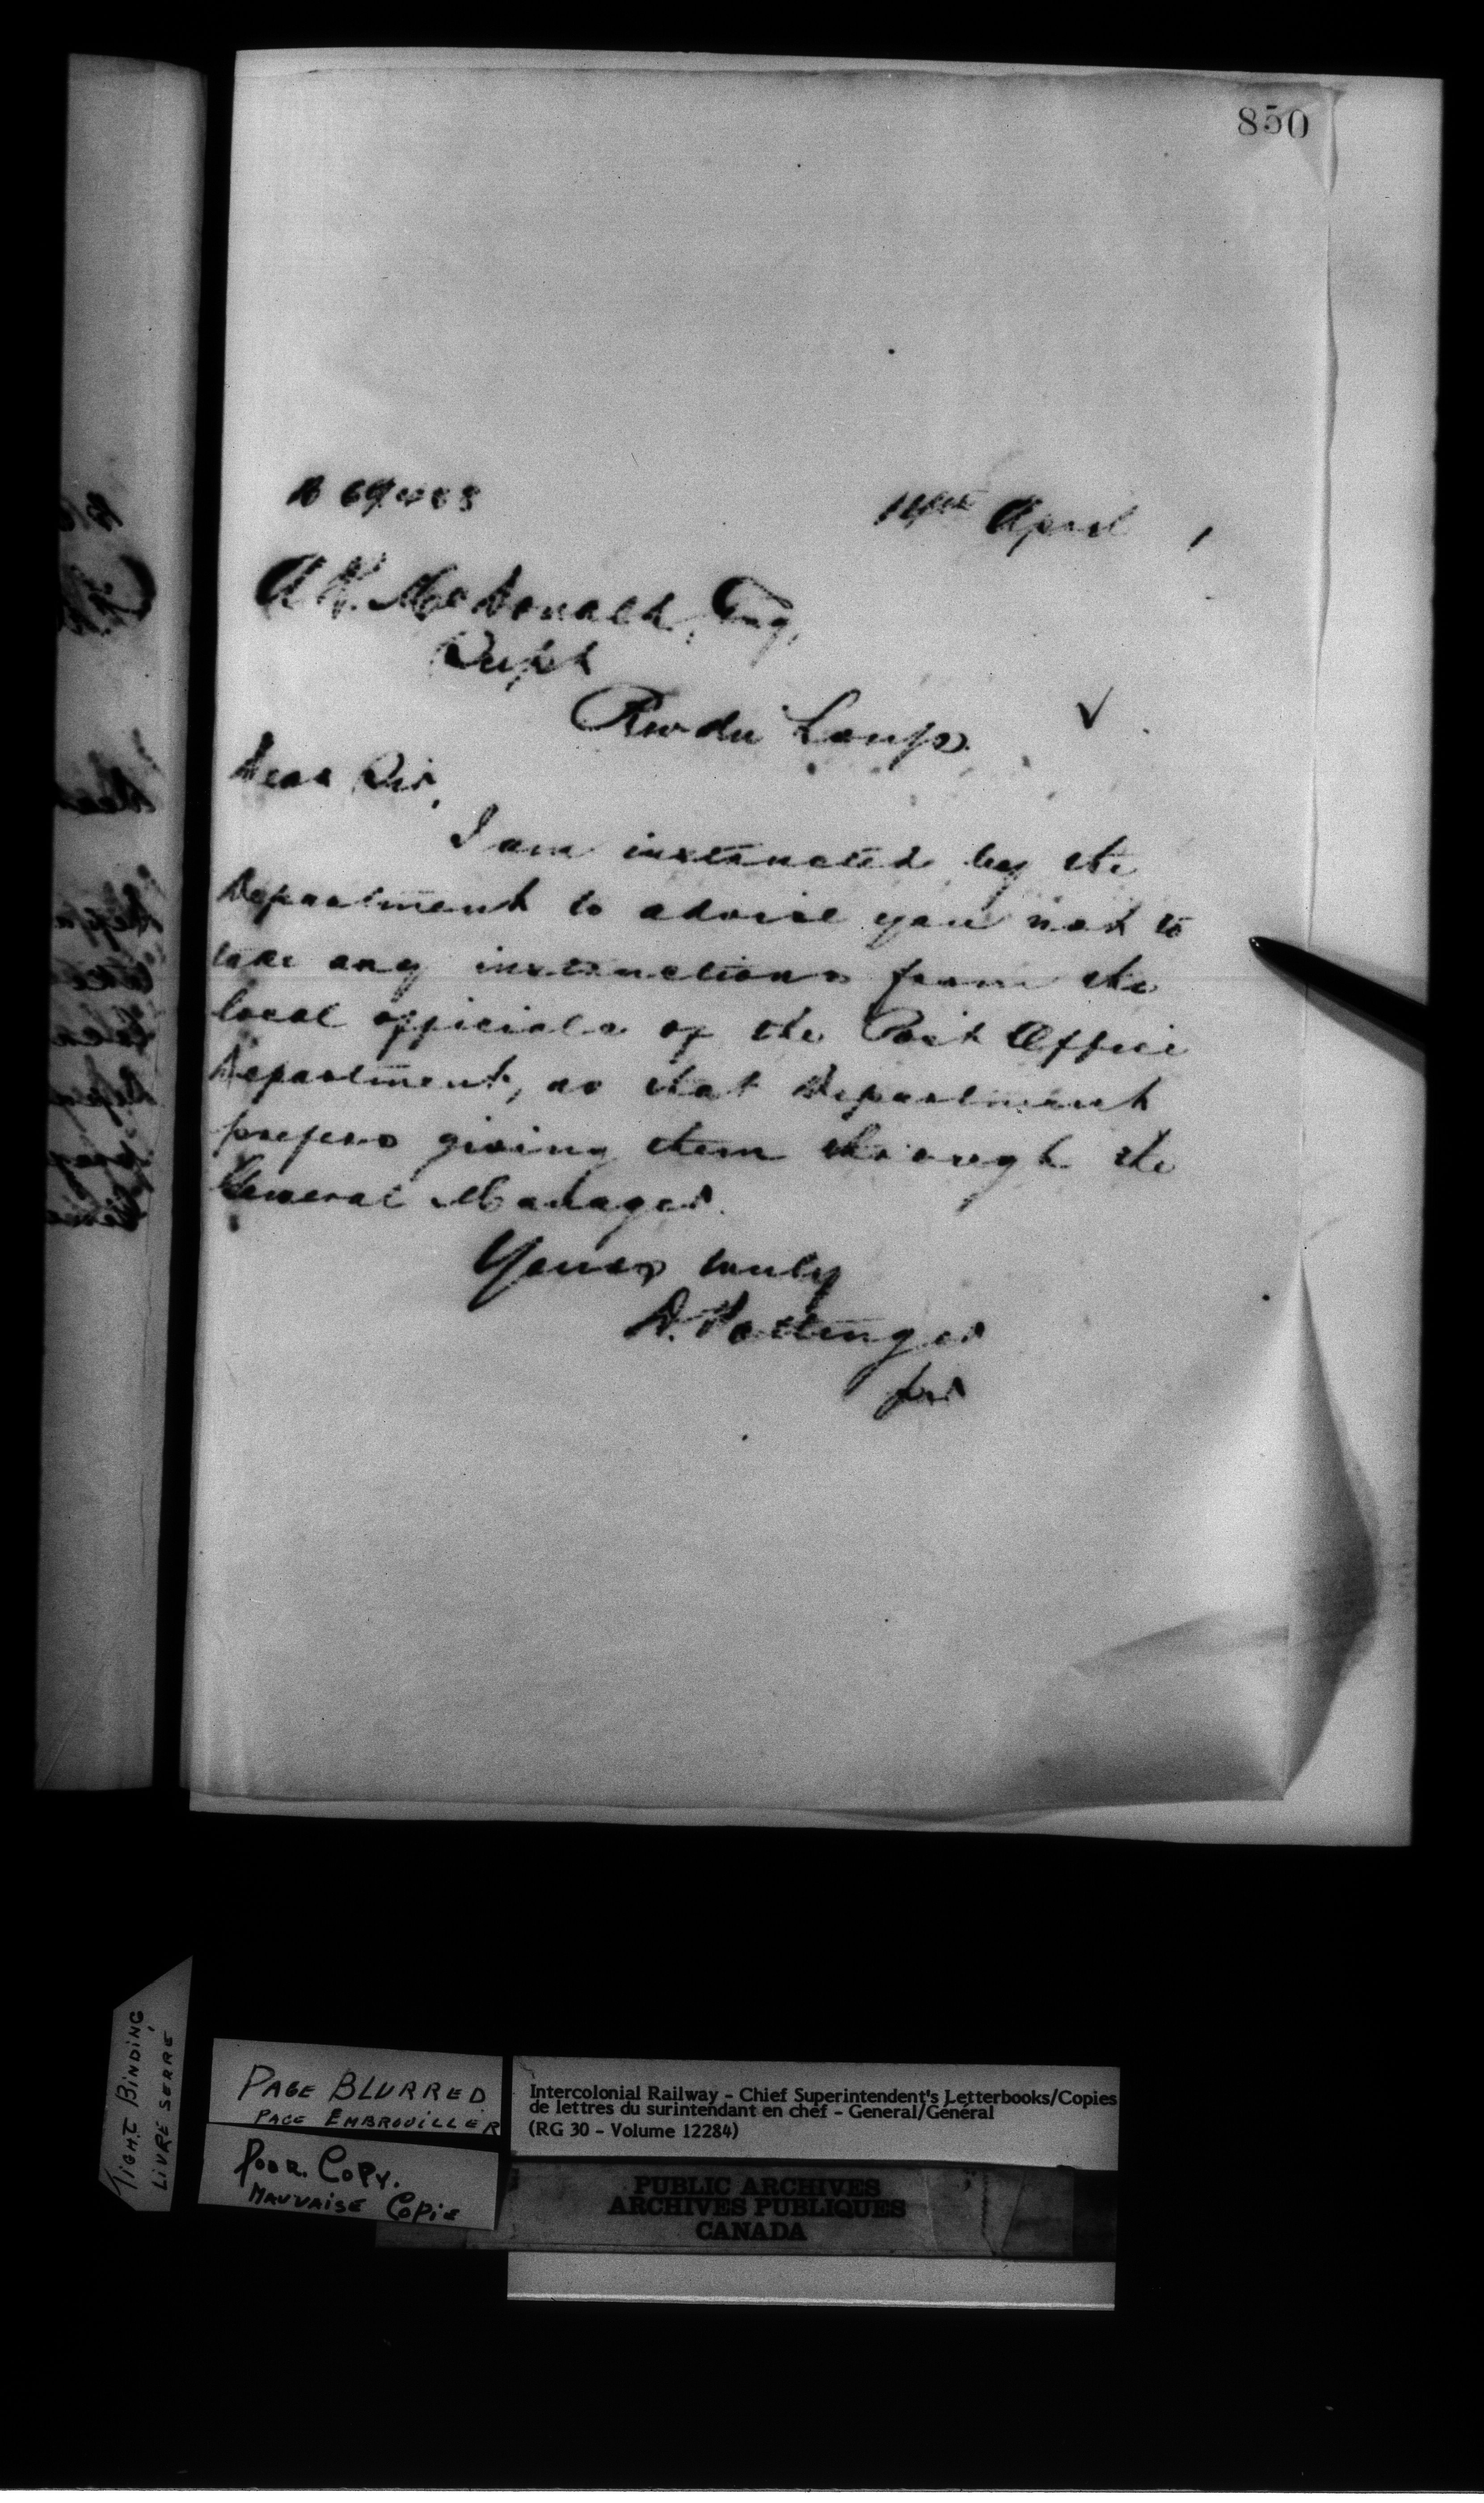 850
14th April,
A.R. McDonald, Esq,
Supt
Riv du Loup.
Dear Sir,
I am instructed by the
Department to advise you not to
take any instructions from the
local officials of the Post Office
Department, as that Department
prefers giving them through the
General Manager.
Yours truly
D. Pottinger
for
TIGHT BINDING
LIVRE SERRÉ
PAGE BLURRED
PAGE EMBROUILLER
POOR COPY.
MAUVAISE COPIE
Intercolonial Railway - Chief Superintendent's Letterbooks/Copies
de lettres du surintendant en chef - General/Général
(RG 30 - Volume 12284)
PUBLIC ARCHIVES
ARCHIVES PUBLIQUES
CANADA